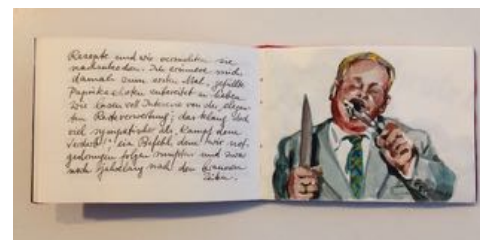 Rezepte und wir versuchten sie
nachzukochen. Ich erinnere mich
damals zum ersten Mal, gefüllte
Paprikaschoten zubereitet zu haben.
Wir lasen voll Interesse von der elegan-
ten Resteverwertung; das klang
viel sympathischer als "Kampf dem
Verderb", ein Befehl dem wir not-
gedrungen folgen mussten und zwar
noch jahrelang nach den braunen
Zeiten.